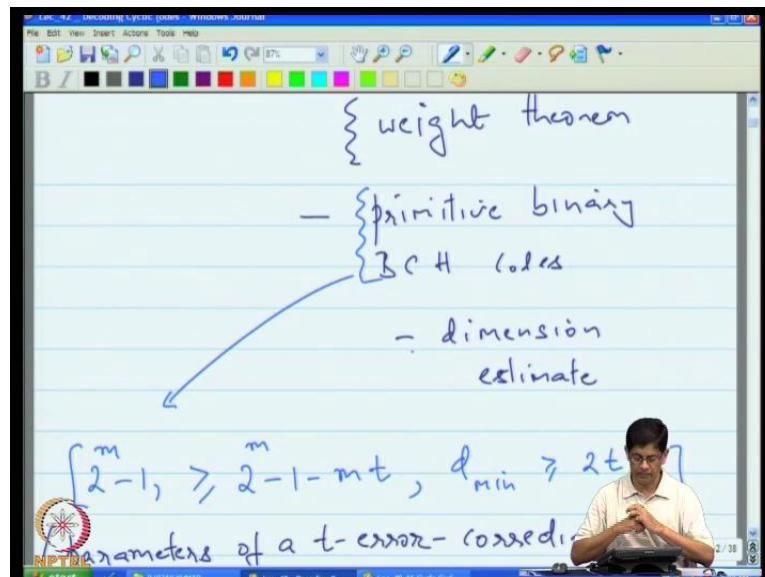 Lec_42 _ Decoding Cyclic Codes - Windows Journal
File Edit View Insert Actions Tools Help
87%
B I
{ weight theorem
— { primitive binary
BCH codes
- dimension
estimate
[2^m-1, ≥ 2^m-1-mt, d_min ≥ 2t
parameters of a t-error-correcti
NPTEL
2/38
start